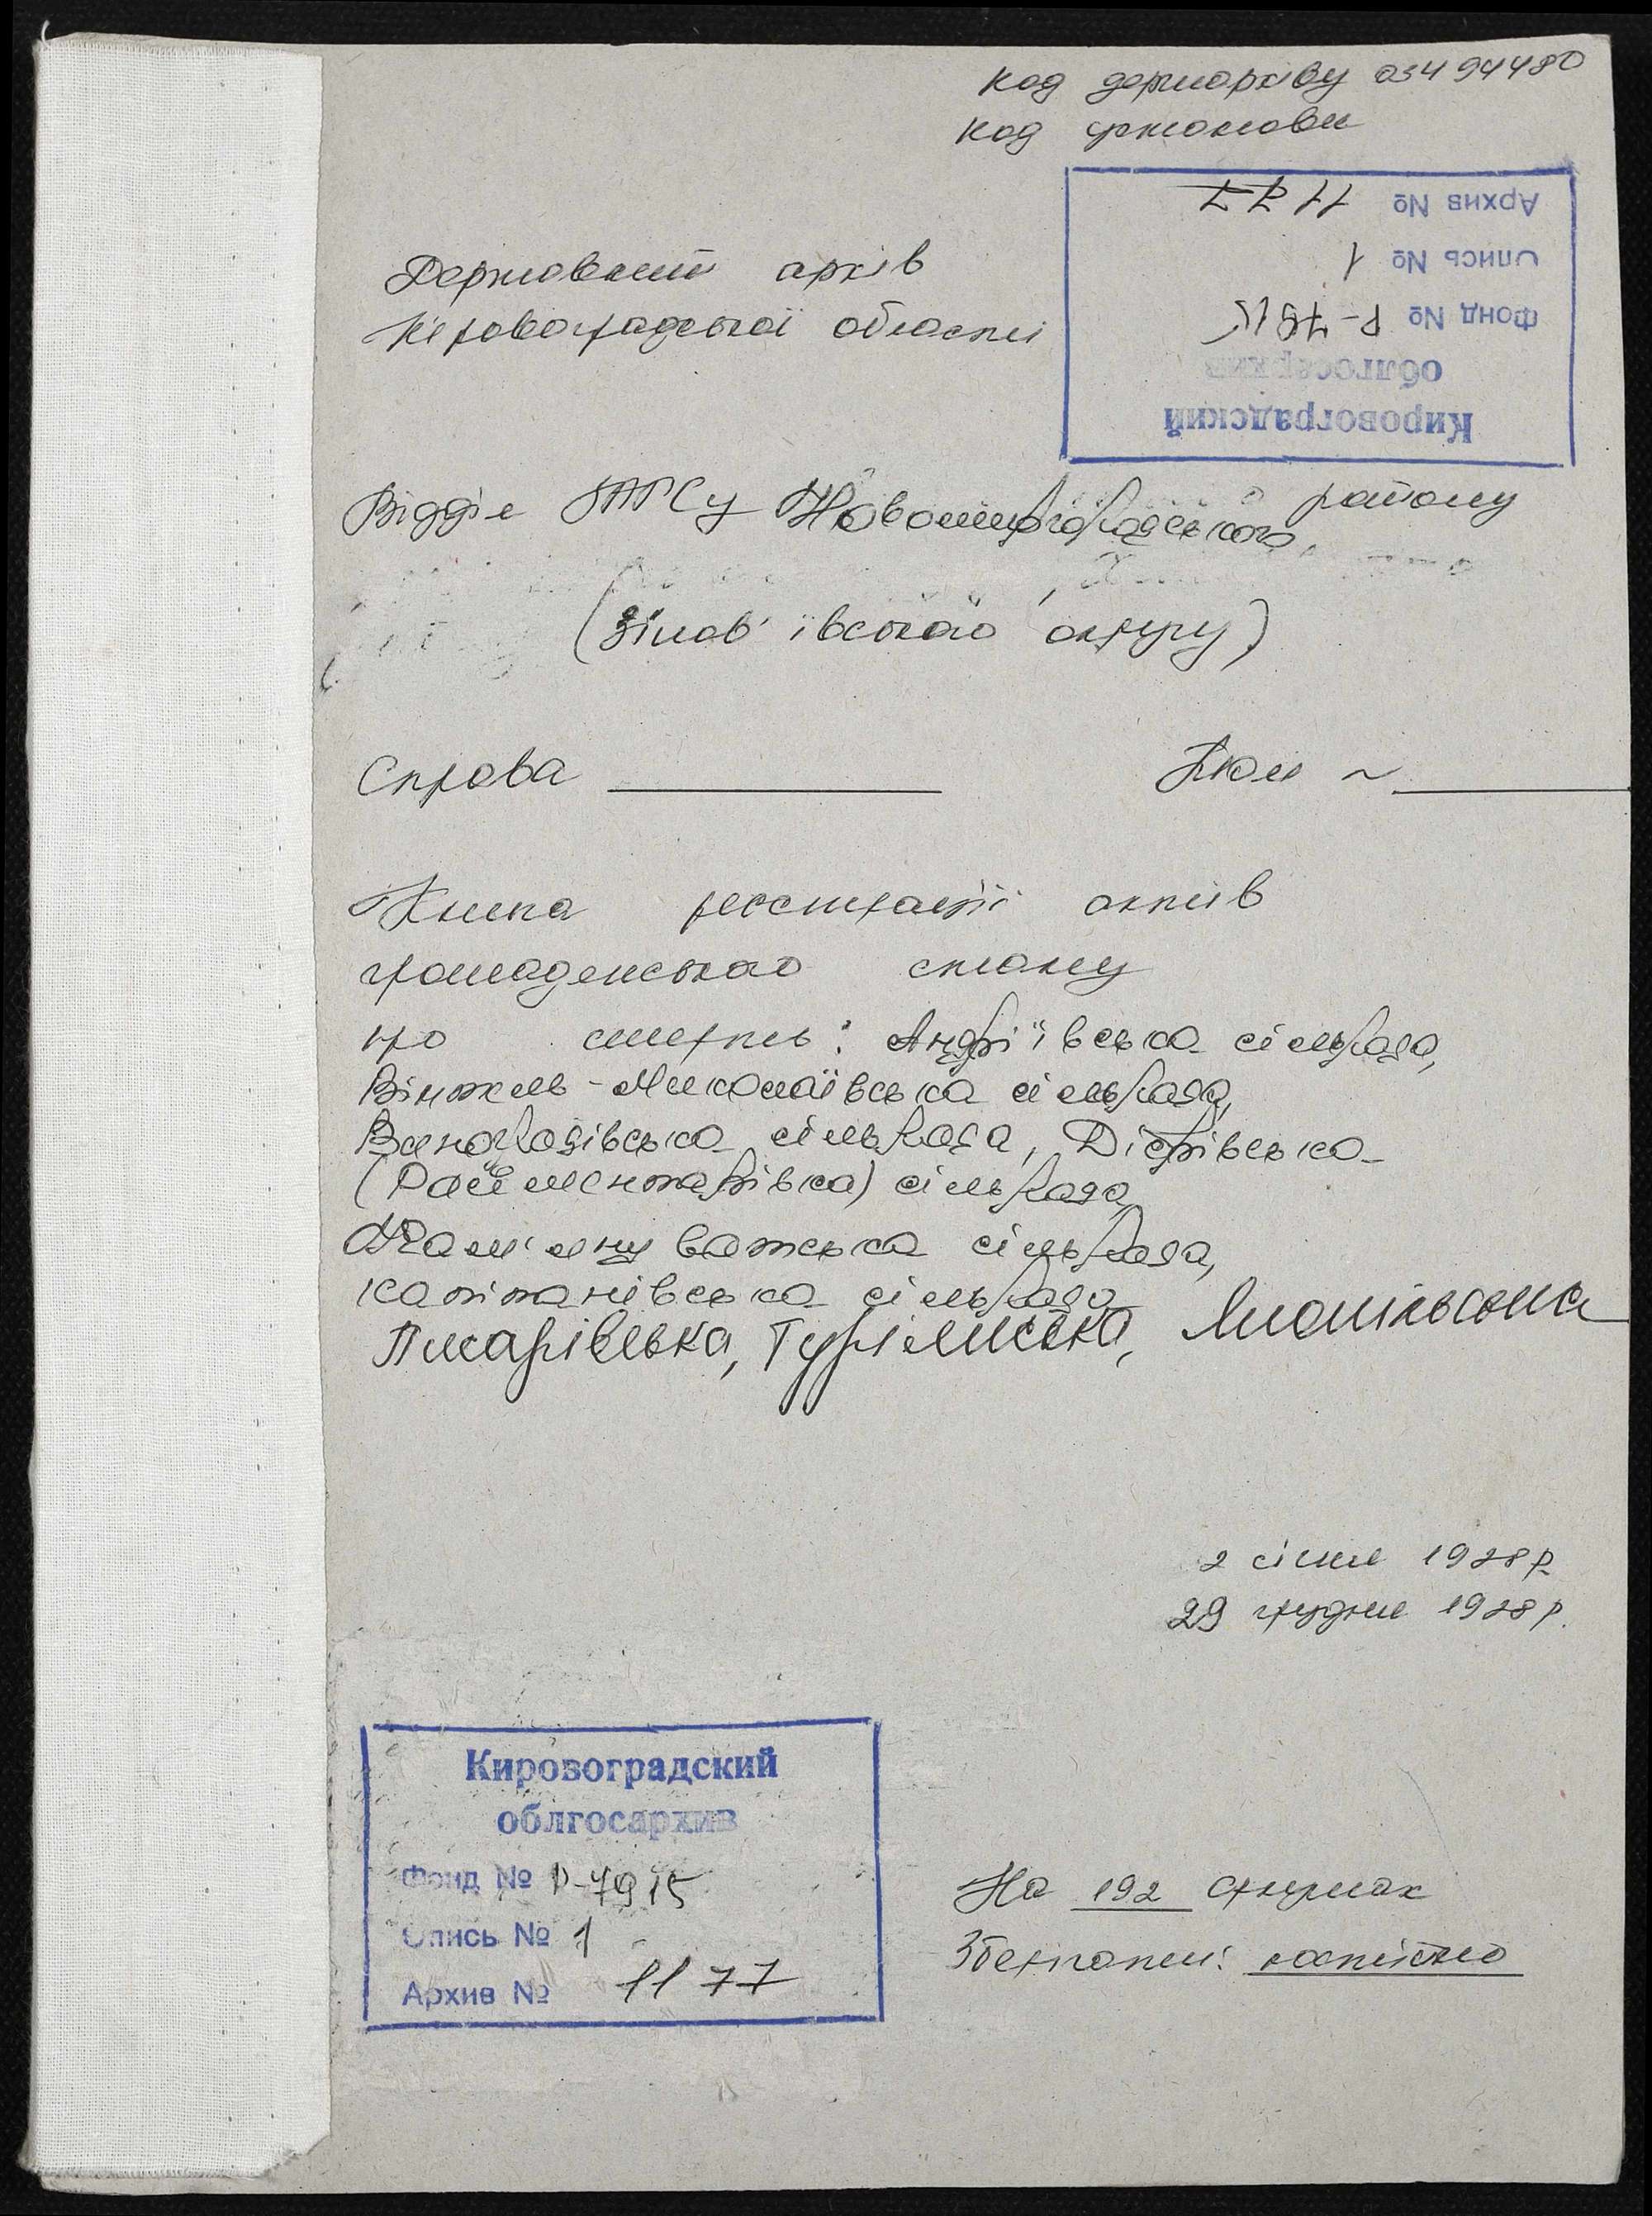 код держархіву 03494480
код установи
Архив № 1177
Опись № 1
Фонд № Р-7915
облгосархив
Кировоградский
Державний архів
Кіровоградської області
Відділ ЗАГСу Новомиргородського району
(Зінов'ївського округу)
Справа Том №
Книга реєстрації актів
громадянського стану
про смерть: Андріївська сільрада,
Вінжель-Миколаївська сільрада,
Виноградівська сільрада, Дібрівська
(Райментарівка) сільрада
Кам'януватська сільрада,
Капітанівська сільрада
Писарівська, Турільська,
2 січня 1928 р.
29 грудня 1928 р.
Кировоградский
облгосархив
Фонд № Р-7915
Опись № 1
Архив № 1177
На 192 аркушах
Зберігати: постійно